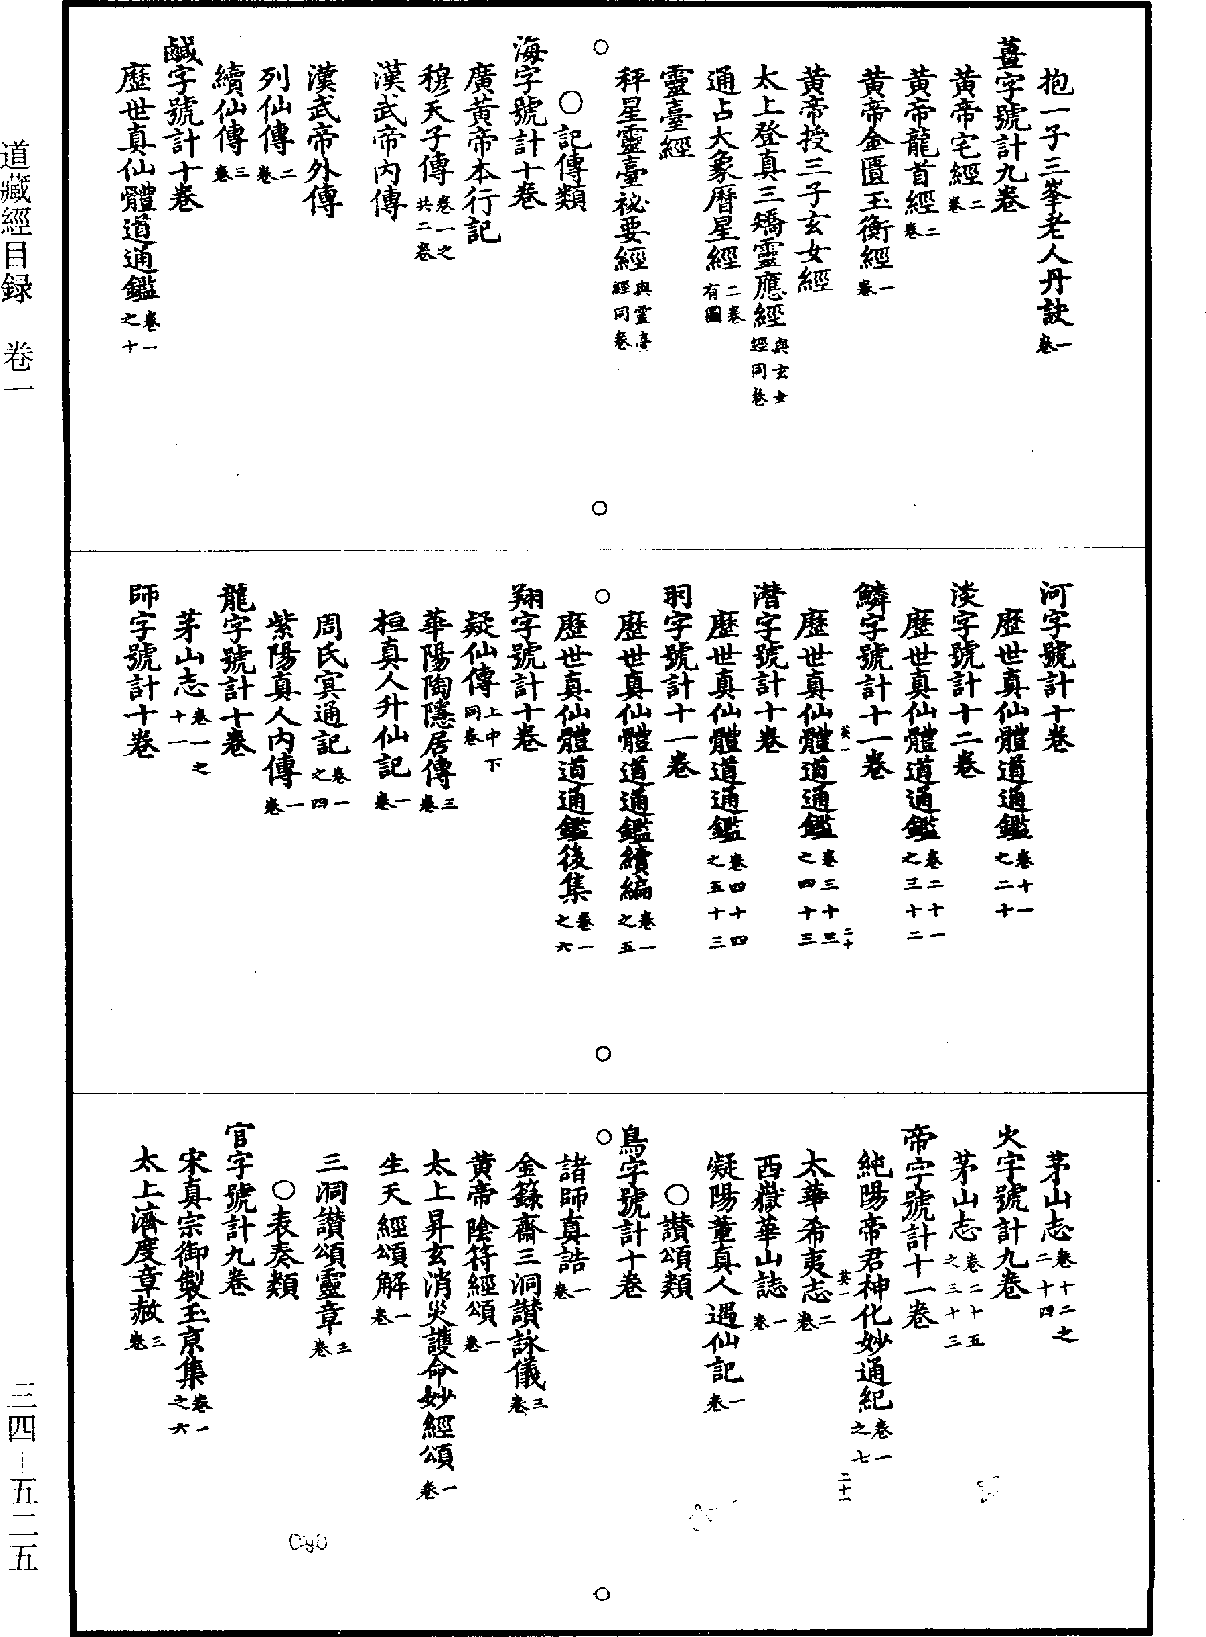 抱一子三峯老人丹訣一卷
薑字號計九卷
黃帝宅經二卷
黃帝龍首經二卷
黃帝金匱玉衡經一卷
黃帝授三子玄女經
太上登真三矯靈應經與玄女經同卷
通占大象曆星經二卷有圖
靈臺經
秤星靈臺祕要經與靈臺經同卷
○記傳類
海字號計十卷
廣黃帝本行記
穆天子傳卷一之六二卷
漢武帝內傳
漢武帝外傳
列仙傳二卷
續仙傳三卷
鹹字號計十卷
歷世真仙體道通鑑卷一之十
河字號計十卷
歷世真仙體道通鑑卷十一之二十
淡字號計十二卷
歷世真仙體道通鑑卷二十一之三十二
鱗字號計十一卷
英一
二十
歷世真仙體道通鑑卷三十三之四十三
潛字號計十卷
歷世真仙體道通鑑卷四十四之五十三
羽字號計十一卷
歷世真仙體道通鑑續編卷一之五
歷世真仙體道通鑑後集卷一之六
翔字號計十卷
疑仙傳上中下同卷
華陽陶隱居傳三卷
桓真人升仙記一卷
周氏冥通記卷一之四
紫陽真人內傳一卷
龍字號計十卷
茅山志卷一之十一
師字號計十卷
茅山志卷十二之二十四
火字號計九卷
茅山志卷二十五之三十三
帝字號計十一卷
純陽帝君神化妙通紀卷一之七
英一
二十一
太華希夷志二卷
西嶽華山誌一卷
凝陽董真人遇仙記一卷
○讚頌類
鳥字號計十卷
諸師真誥一卷
金籙齋三洞讚詠儀三卷
黃帝陰符經頌一卷
太上昇玄消災護命妙經頌一卷
生天經頌解一卷
三洞讚頌靈章三卷
○表奏類
官字號計九卷
宋真宗御製玉京集卷一之六
太上濟度章赦三卷
道藏經目録 卷一
三四－五二五